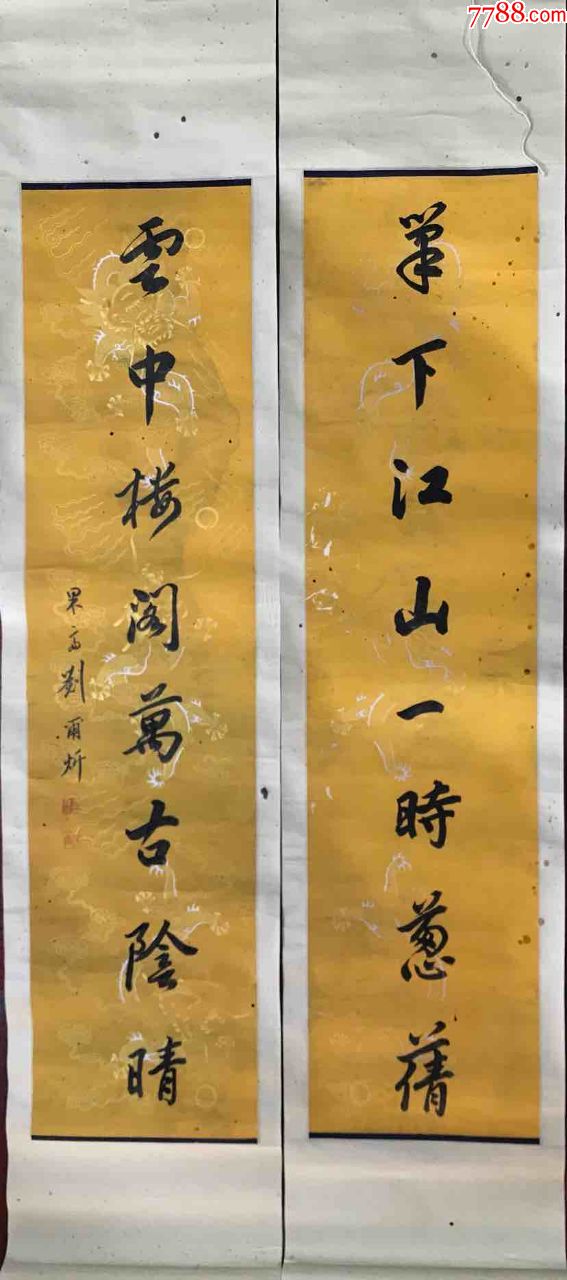 7788.com
筆下江山一時蔥蒨
雲中楼阁萬古陰晴
果斎劉爾炘